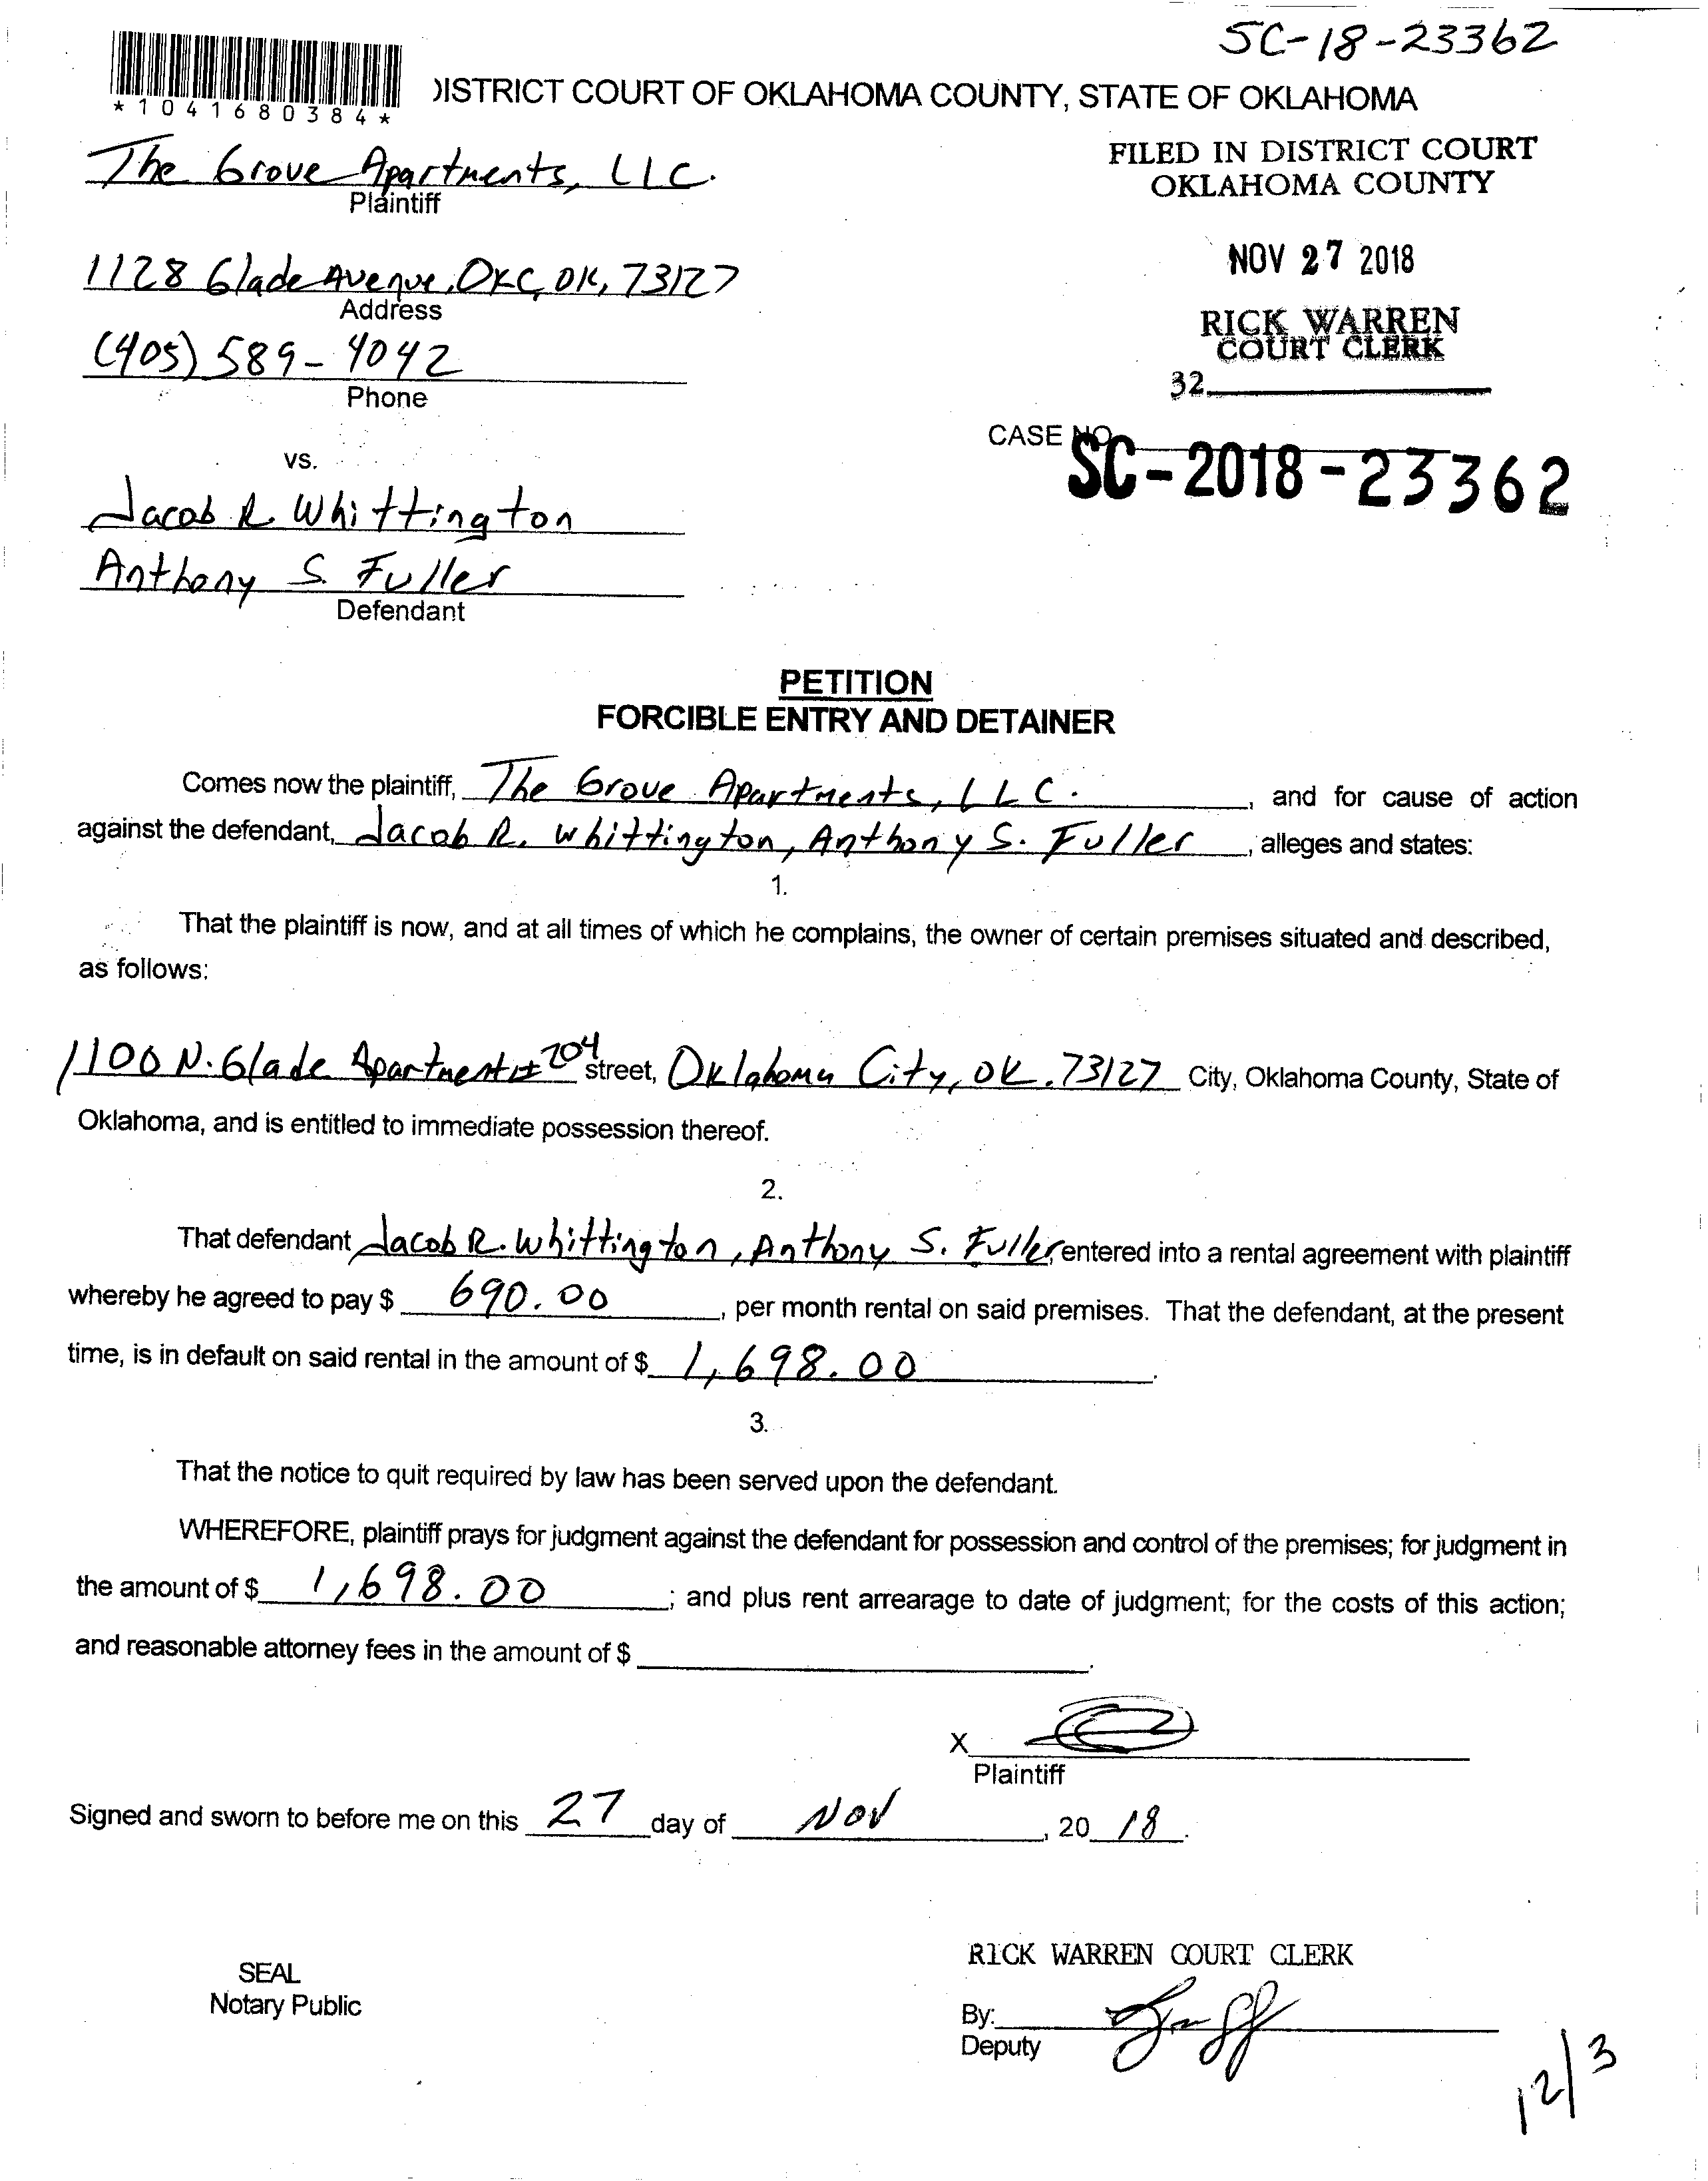 SC-18-23362
*1041680384*
DISTRICT COURT OF OKLAHOMA COUNTY, STATE OF OKLAHOMA
The Grove Apartments, LLC.
Plaintiff
FILED IN DISTRICT COURT
OKLAHOMA COUNTY
1128 Glade Avenue, OKC, OK, 73127
Address
NOV 27 2018
(405) 589-4042
Phone
RICK WARREN
COURT CLERK
32
vs.
CASE NO.
SC-2018-23362
Jacob R Whittington
Anthony S. Fuller
Defendant
PETITION
FORCIBLE ENTRY AND DETAINER
Comes now the plaintiff, The Grove Apartments, LLC. , and for cause of action
against the defendant, Jacob R. Whittington, Anthony S. Fuller , alleges and states:
1.
That the plaintiff is now, and at all times of which he complains, the owner of certain premises situated and described,
as follows:
1100 N. Glade Apartment # 204 street, Oklahoma City, OK. 73127 City, Oklahoma County, State of
Oklahoma, and is entitled to immediate possession thereof.
2.
That defendant Jacob R. Whittington, Anthony S. Fuller, entered into a rental agreement with plaintiff
whereby he agreed to pay $ 690.00 , per month rental on said premises. That the defendant, at the present
time, is in default on said rental in the amount of $ 1,698.00 .
3.
That the notice to quit required by law has been served upon the defendant.
WHEREFORE, plaintiff prays for judgment against the defendant for possession and control of the premises; for judgment in
the amount of $ 1,698.00 ; and plus rent arrearage to date of judgment; for the costs of this action;
and reasonable attorney fees in the amount of $ .
X
Plaintiff
Signed and sworn to before me on this 27 day of Nov , 20 18 .
SEAL
Notary Public
RICK WARREN COURT CLERK
By:
Deputy
12/3